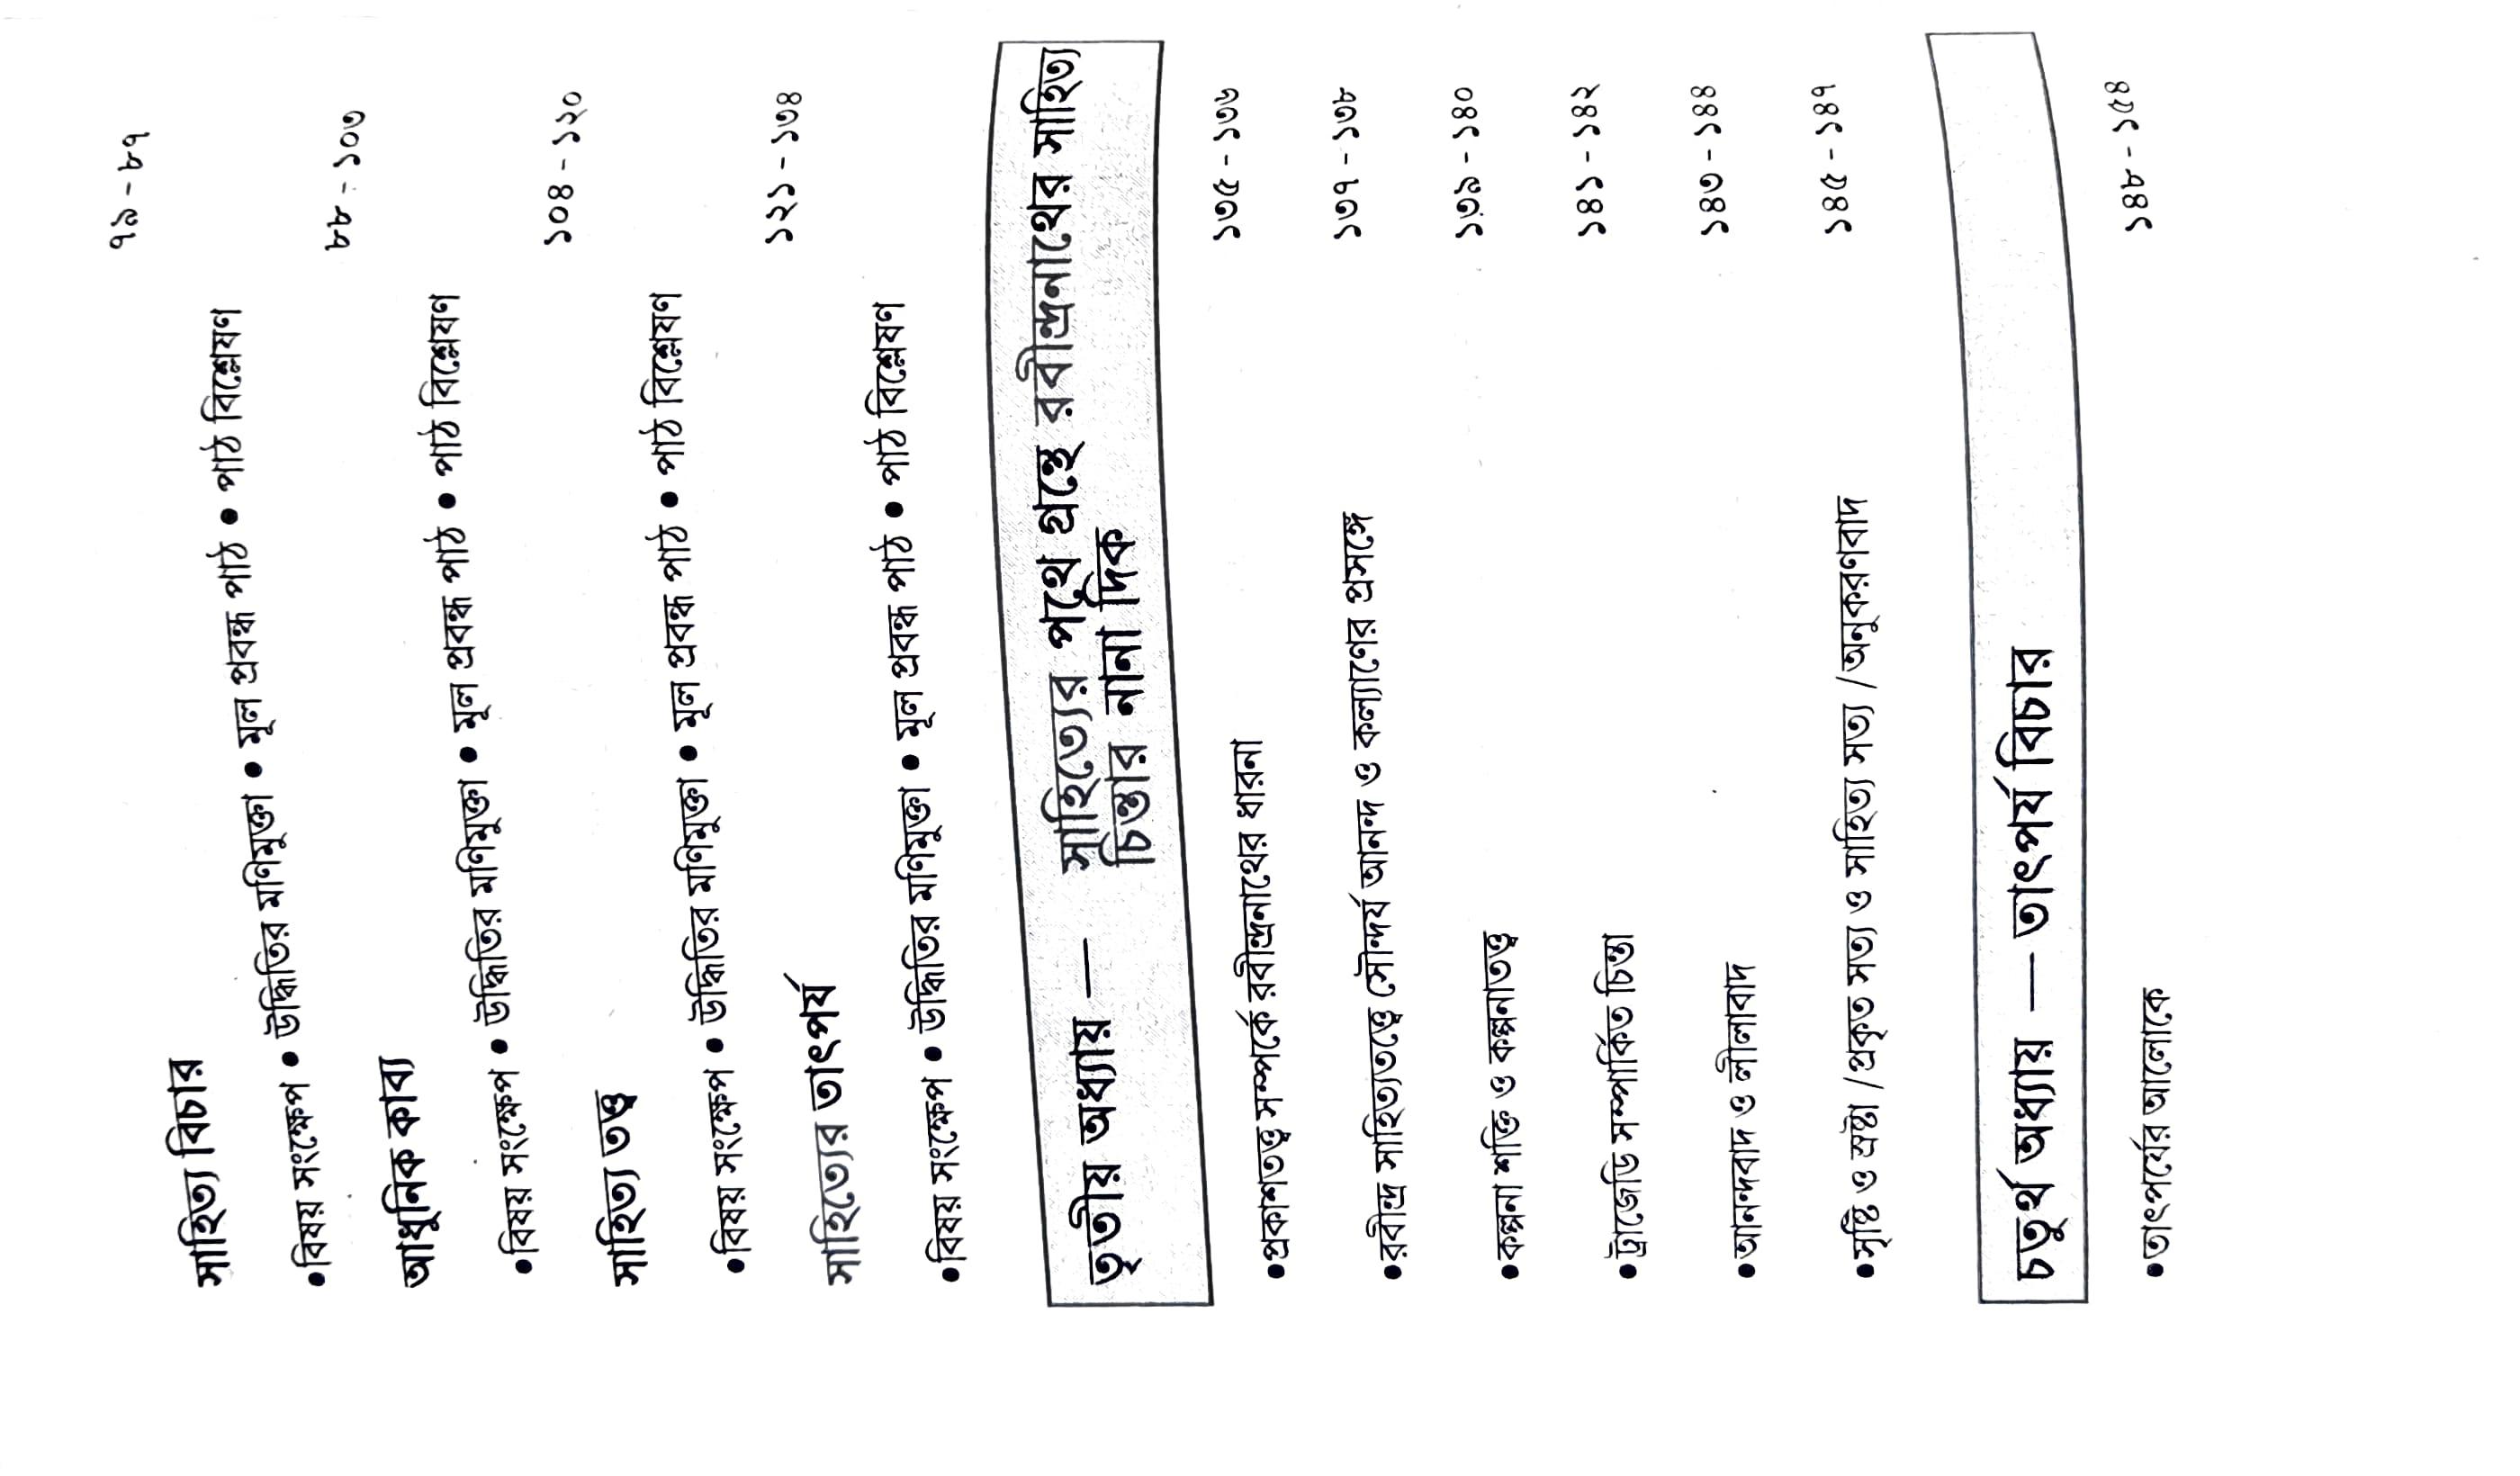 ৭৯ - ৮৭
সাহিত্য বিচার
•বিষয় সংক্ষেপ • উদ্ধিতির মণিমুক্তা • মূল প্রবন্ধ পাঠ • পাঠ বিশ্লেষণ
৮৮ - ১০৩
আধুনিক কাব্য
•বিষয় সংক্ষেপ • উদ্ধিতির মণিমুক্তা • মূল প্রবন্ধ পাঠ • পাঠ বিশ্লেষণ
১০৪ - ১২০
সাহিত্য তত্ত্ব
•বিষয় সংক্ষেপ • উদ্ধিতির মণিমুক্তা • মূল প্রবন্ধ পাঠ • পাঠ বিশ্লেষণ
১২১ - ১৩৪
সাহিত্যের তাৎপর্য
•বিষয় সংক্ষেপ • উদ্ধিতির মণিমুক্তা • মূল প্রবন্ধ পাঠ • পাঠ বিশ্লেষণ
তৃতীয় অধ্যায় — সাহিত্যের পথে গ্রন্থে রবীন্দ্রনাথের সাহিত্য
চিন্তার নানা দিক
•প্রকাশতত্ত্ব সম্পর্কে রবীন্দ্রনাথের ধারনা ১৩৫ - ১৩৬
•রবীন্দ্র সাহিত্যতত্ত্বে সৌন্দর্য আনন্দ ও কল্যাণের প্রসঙ্গে ১৩৭ - ১৩৮
•কল্পনা শক্তি ও কল্পনাতত্ত্ব ১৩৯ - ১৪০
•ট্রাজেডি সম্পার্কিত চিন্তা ১৪১ - ১৪২
•আনন্দবাদ ও লীলাবাদ ১৪৩ - ১৪৪
•সৃষ্টি ও স্রষ্টা /প্রকৃত সত্য ও সাহিত্য সত্য /অনুকরণবাদ ১৪৫ - ১৪৭
চতুর্থ অধ্যায় — তাৎপর্য বিচার
•তাৎপর্যের আলোকে ১৪৮ - ১৫৪